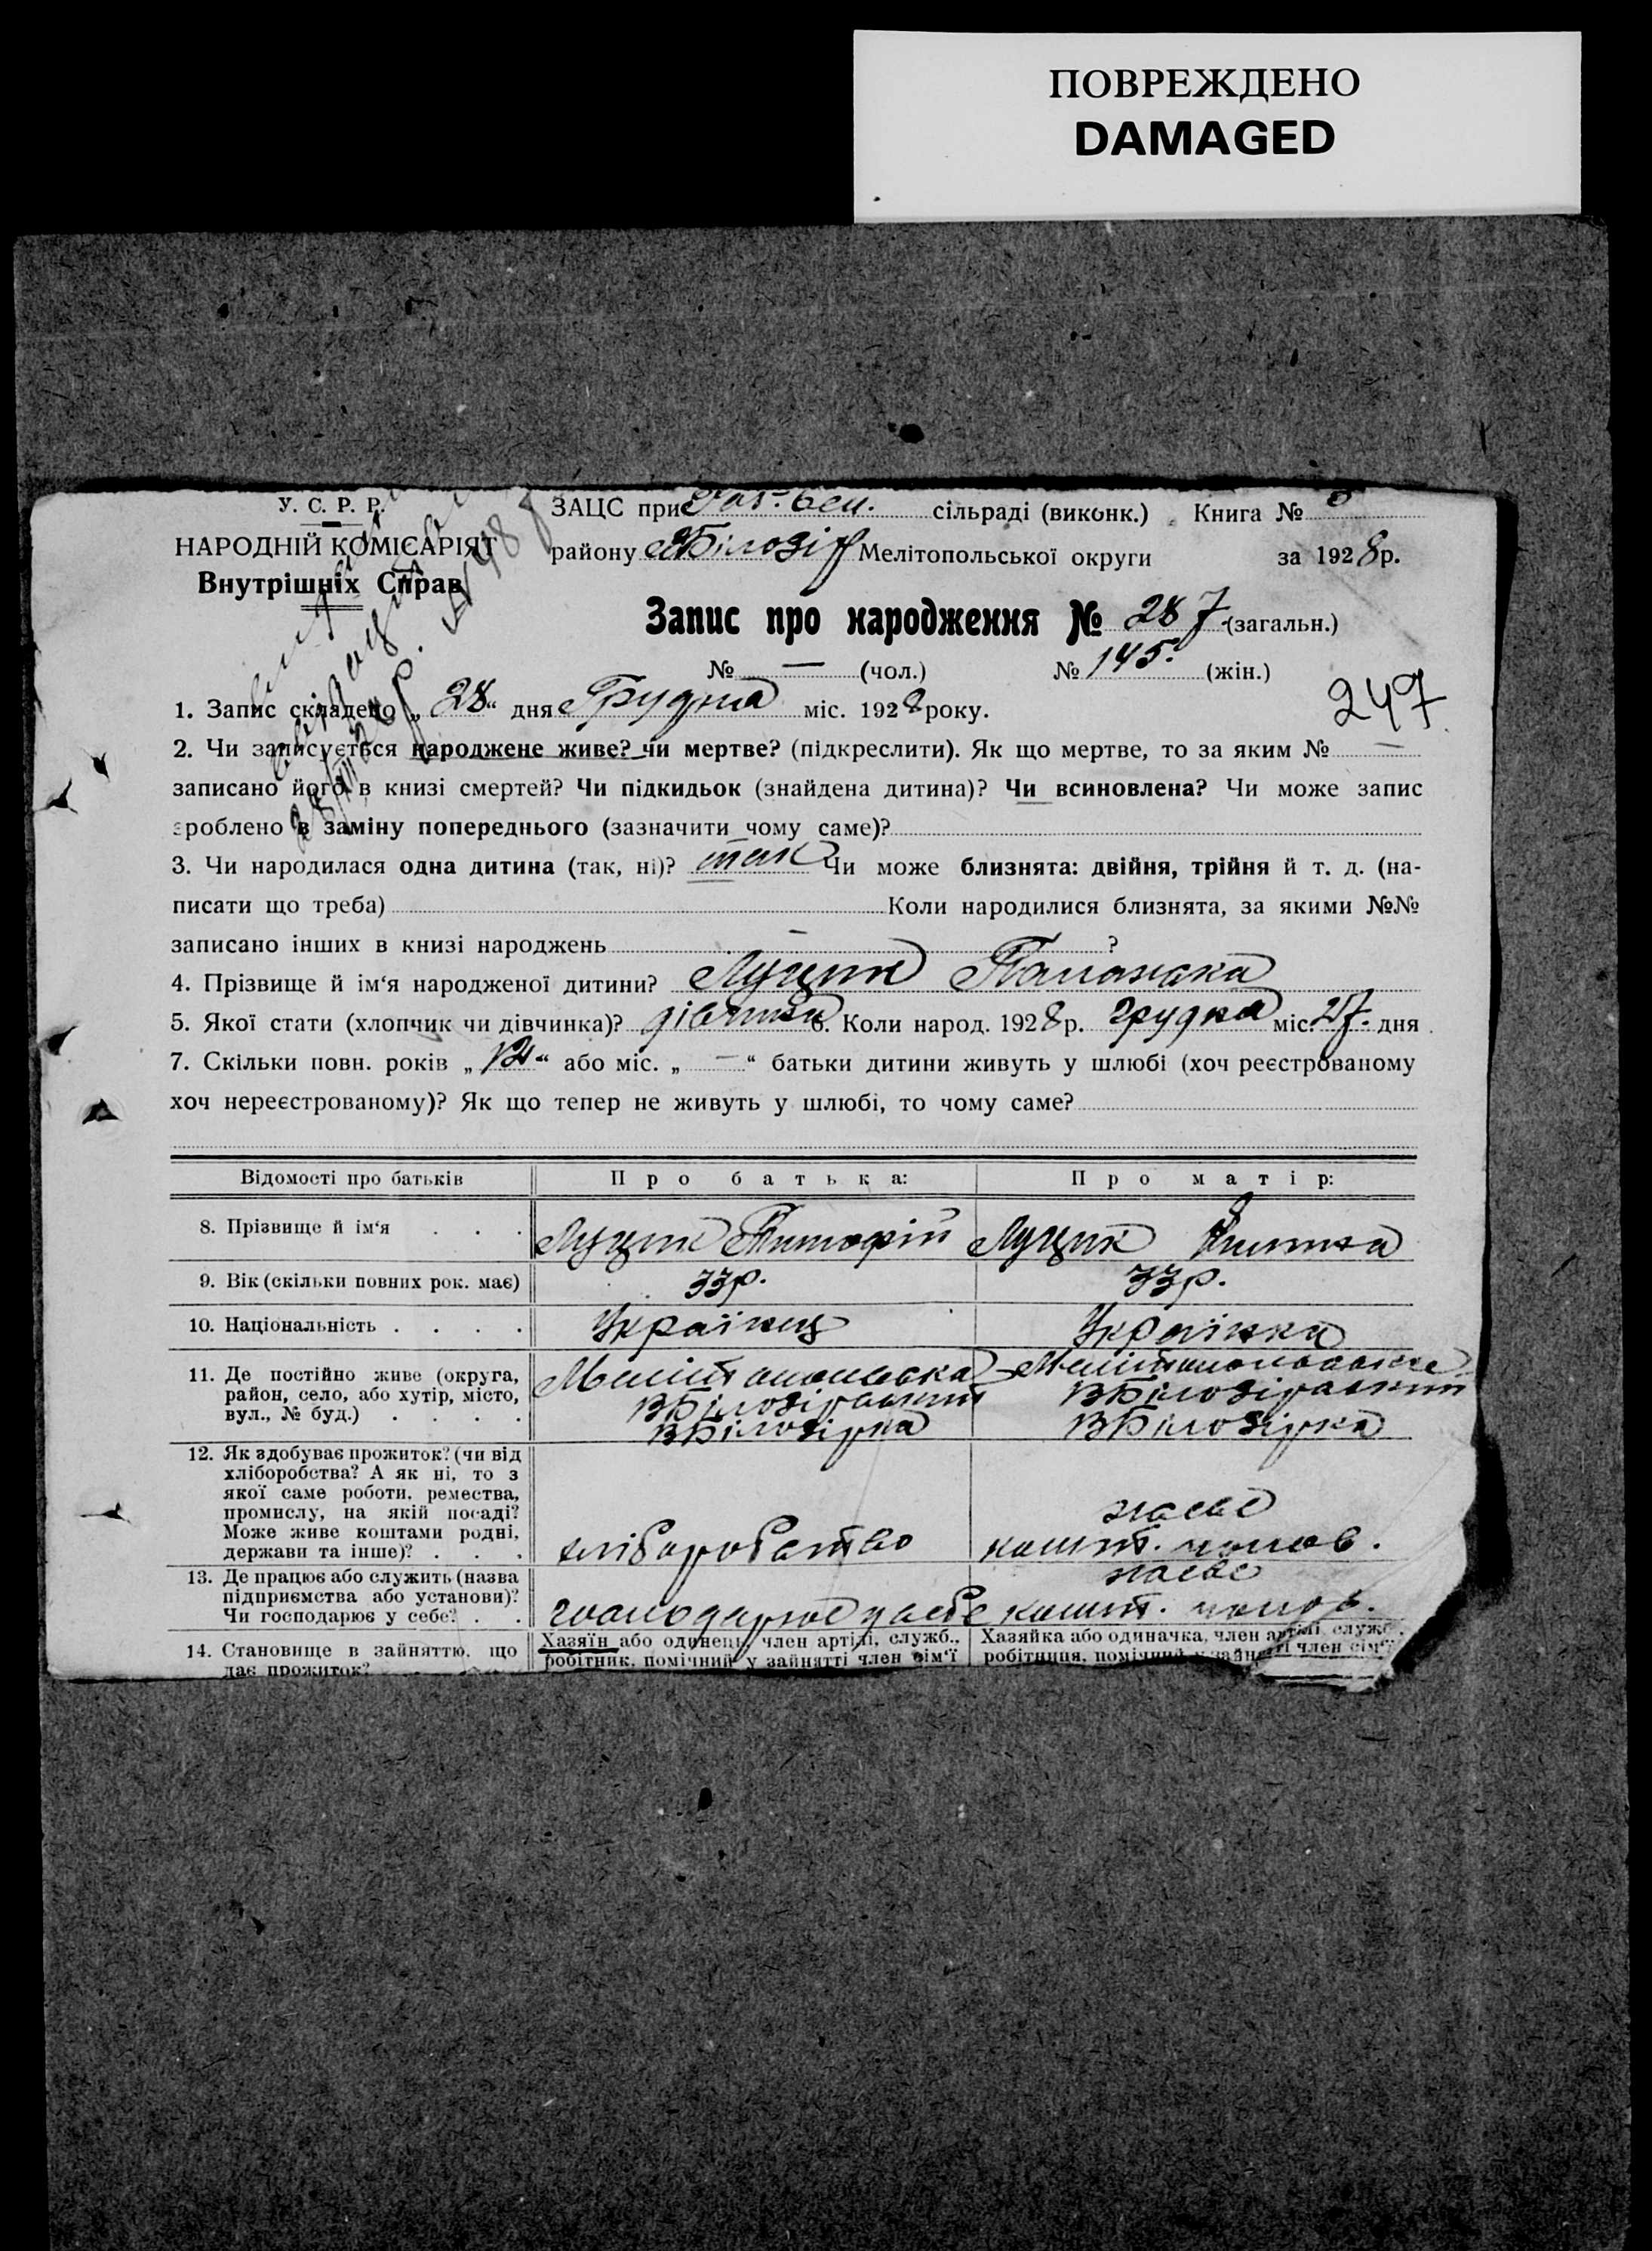 ПОВРЕЖДЕНО
DAMAGED
У. С. Р. Р.
НАРОДНІЙ КОМІСАРІЯТ
Внутрішніх Справ
ЗАЦС при сільраді (виконк.) Книга №
району В Білозір Мелітопольської округи за 1928 р.
Запис про народження № 287 (загальн.)
№ — (чол.) № 145. (жін.)
247
1. Запис складено „28“ дня Грудня міс. 1928 року.
2. Чи записується народжене живе? чи мертве? (підкреслити). Як що мертве, то за яким № —
записано його в книзі смертей? Чи підкидьок (знайдена дитина)? Чи всиновлена? Чи може запис
зроблено в заміну попереднього (зазначити чому саме)?
3. Чи народилася одна дитина (так, ні)? так Чи може близнята: двійня, трійня й т. д. (на-
писати що треба) Коли народилися близнята, за якими №№
записано інших в книзі народжень — ?
4. Прізвище й ім‘я народженої дитини? Луцик Паланака
5. Якої стати (хлопчик чи дівчинка)? дівчинка 6. Коли народ. 1928 р. грудня міс. 27. дня
7. Скільки повн. років „12“ або міс. „—“ батьки дитини живуть у шлюбі (хоч реєстрованому
хоч нереєстрованому)? Як що тепер не живуть у шлюбі, то чому саме?
Відомості про батьків Про батька: Про матір:
8. Прізвище й ім‘я . . . Луцик Тимофій Луцик
9. Вік (скільки повних рок. має) 33р. 33р.
10. Національність . . . . Українец Українка
11. Де постійно живе (округа, Мелітопольська Мелітопольська
район, село, або хутір, місто, ВБілозірський ВБілозірський
вул., № буд.) . . . . ВБілозірка ВБілозірка
12. Як здобуває прожиток? (чи від
хліборобства? А як ні, то з
якої саме роботи, ремества,
промислу, на якій посаді?
Може живе коштами родні,
держави та інше)? . . . хліборобство на єв кошт. чолов.
13. Де працює або служить (назва
підприємства або установи)?
Чи господарює у себе? . . господарює у себе кошт. чолов.
14. Становище в зайняттю, що
дає прожиток?
Хазяїн або одинець, член артілі, служб.,
робітник, помічний у зайнятті член сім‘ї
Хазяйка або одиначка, член артілі, служб.,
робітниця, помічний у зайнятті член сім‘ї